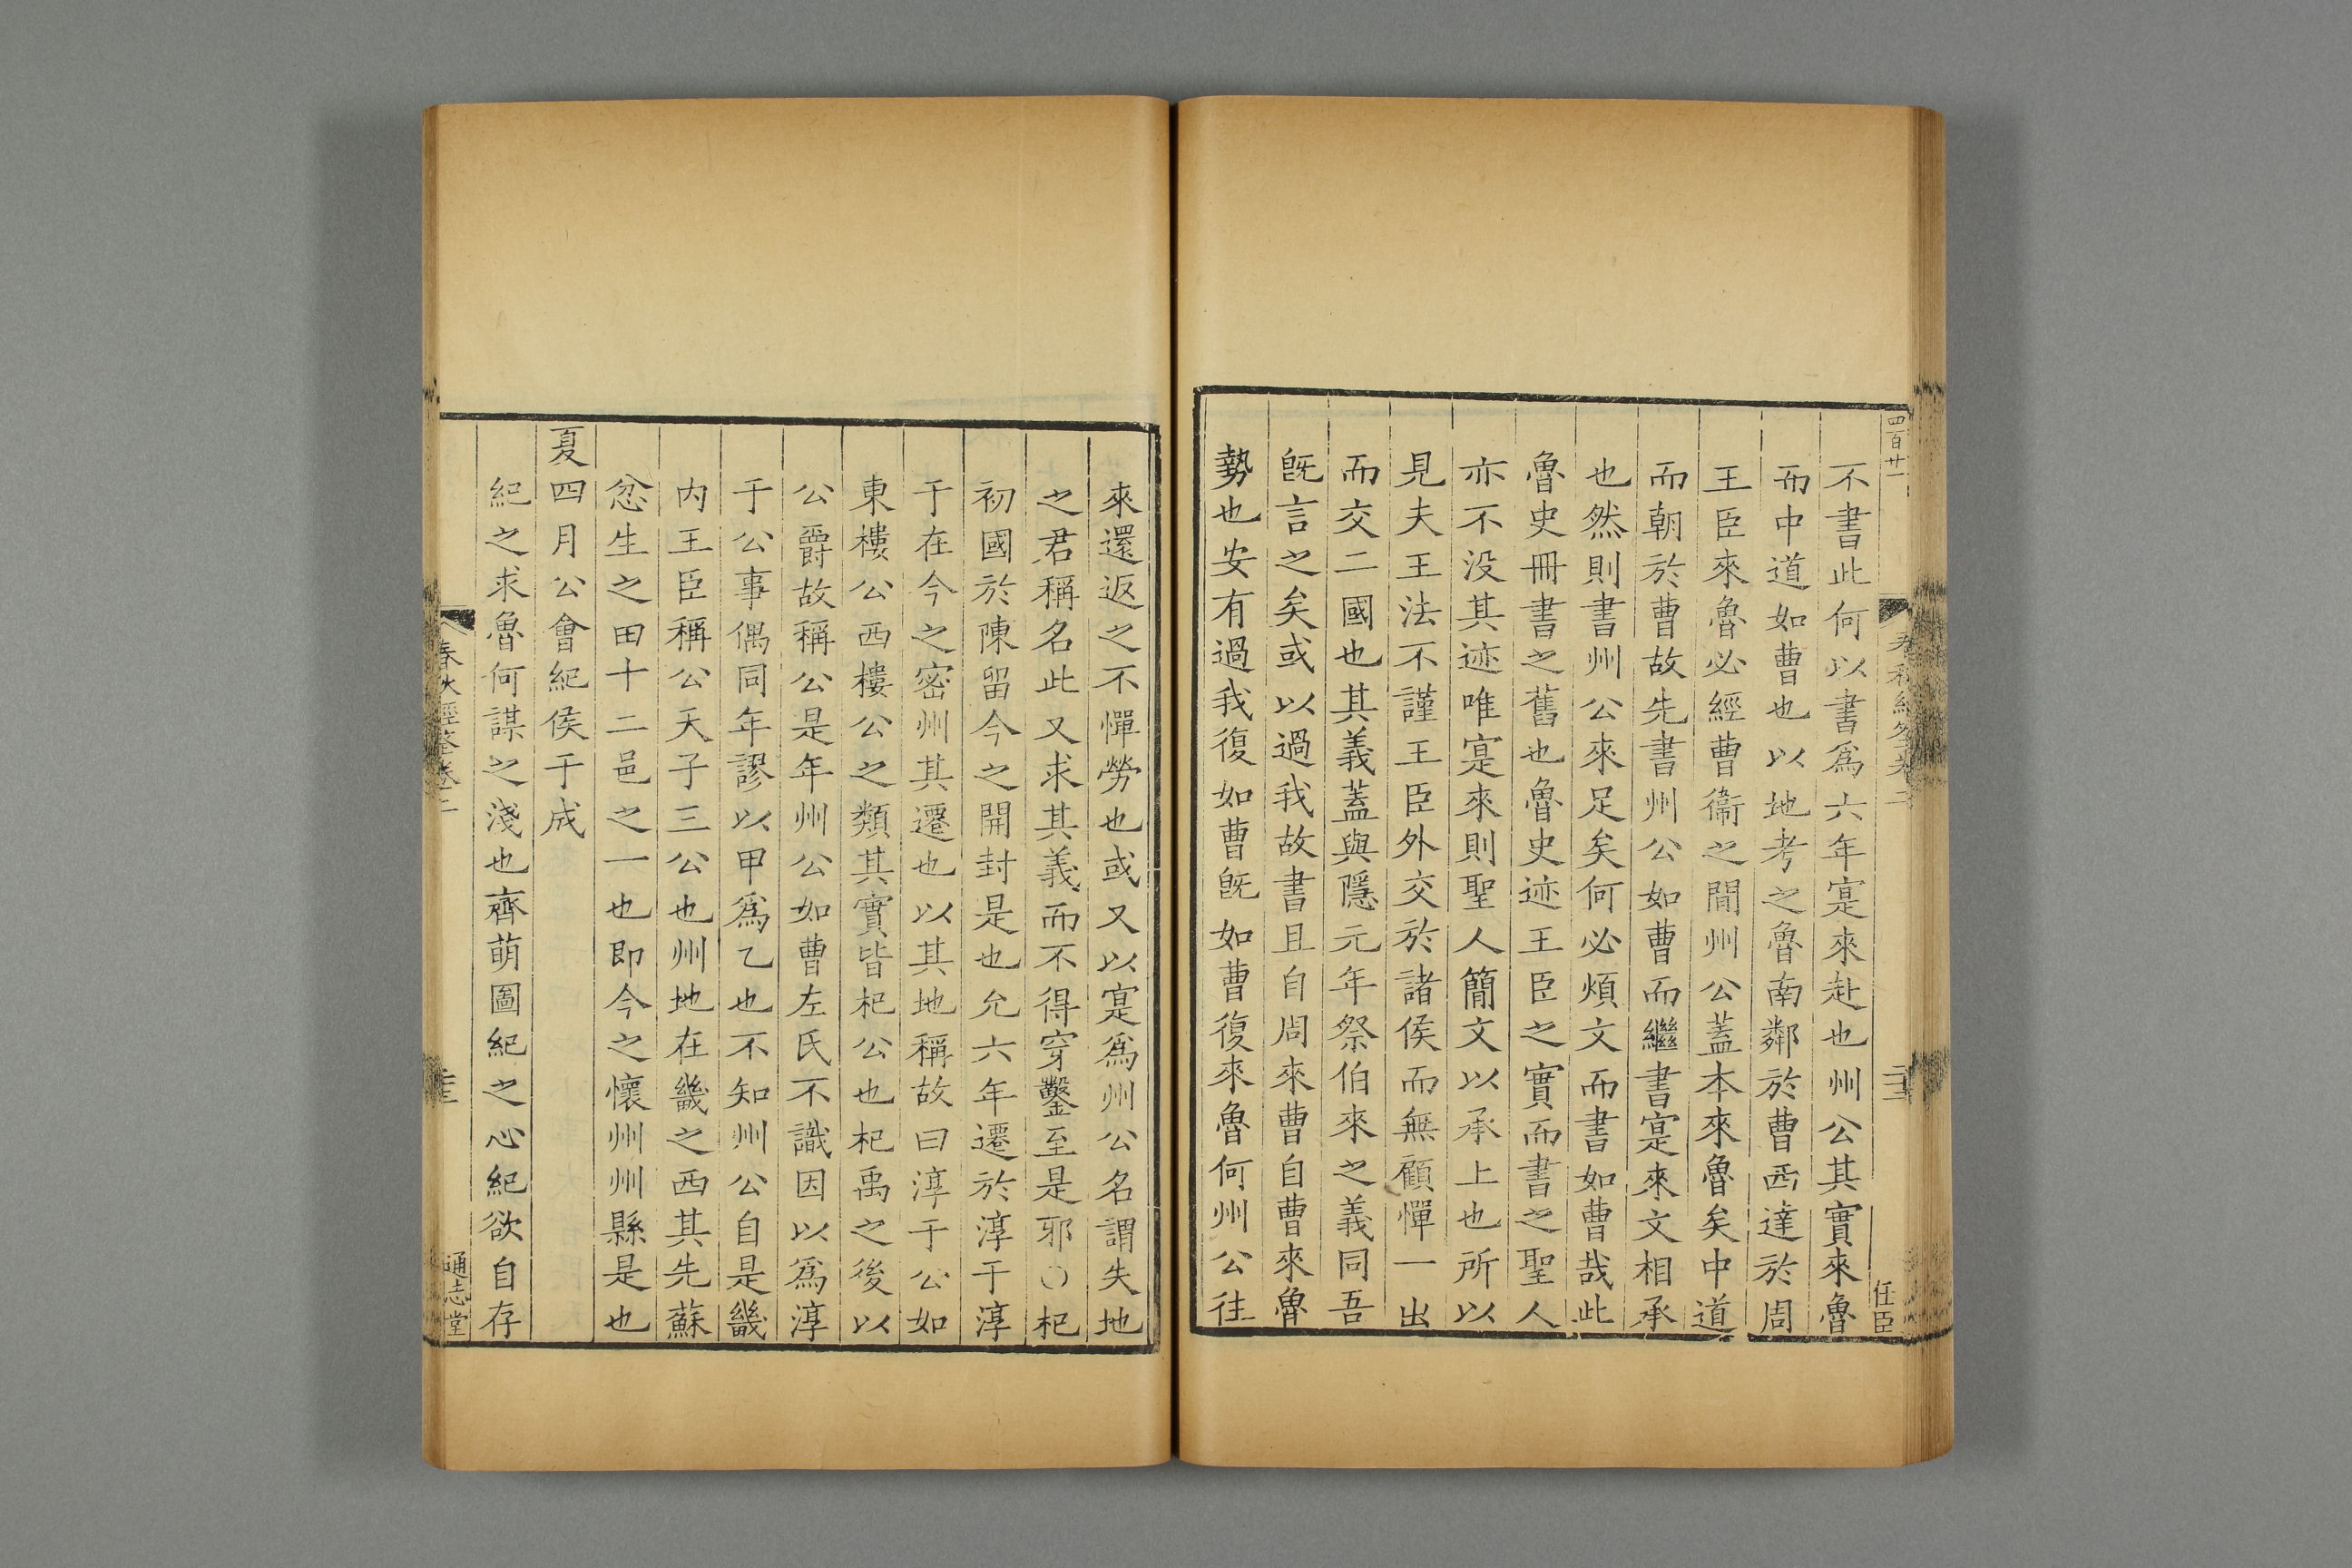 四百廿一
春秋經筌卷二
任臣
不書此何以書爲六年寔來赴也州公其實來魯
而中道如曹也以地考之魯南鄰於曹西達於周
王臣來魯必經曹衞之閒州公蓋本來魯矣中道
而朝於曹故先書州公如曹而繼書寔來文相承
也然則書州公來足矣何必煩文而書如曹哉此
魯史冊書之舊也魯史迹王臣之實而書之聖人
亦不没其迹唯寔來則聖人簡文以承上也所以
見夫王法不謹王臣外交於諸侯而無顧憚一出
而交二國也其義蓋與隱元年祭伯來之義同吾
旣言之矣或以過我故書且自周來曹自曹來魯
勢也安有過我復如曹旣如曹復來魯何州公往
來還返之不憚勞也或又以寔爲州公名謂失地
之君稱名此又求其義而不得穿鑿至是邪○杞
初國於陳留今之開封是也允六年遷於淳于淳
于在今之密州其遷也以其地稱故曰淳于公如
東樓公西樓公之類其實皆杞公也杞禹之後以
公爵故稱公是年州公如曹左氏不識因以爲淳
于公事偶同年謬以甲爲乙也不知州公自是畿
内王臣稱公天子三公也州地在畿之西其先蘇
忿生之田十二邑之一也即今之懷州州縣是也
夏四月公會紀侯于成
紀之求魯何謀之淺也齊萌圖紀之心紀欲自存
春秋經筌卷二
通志堂